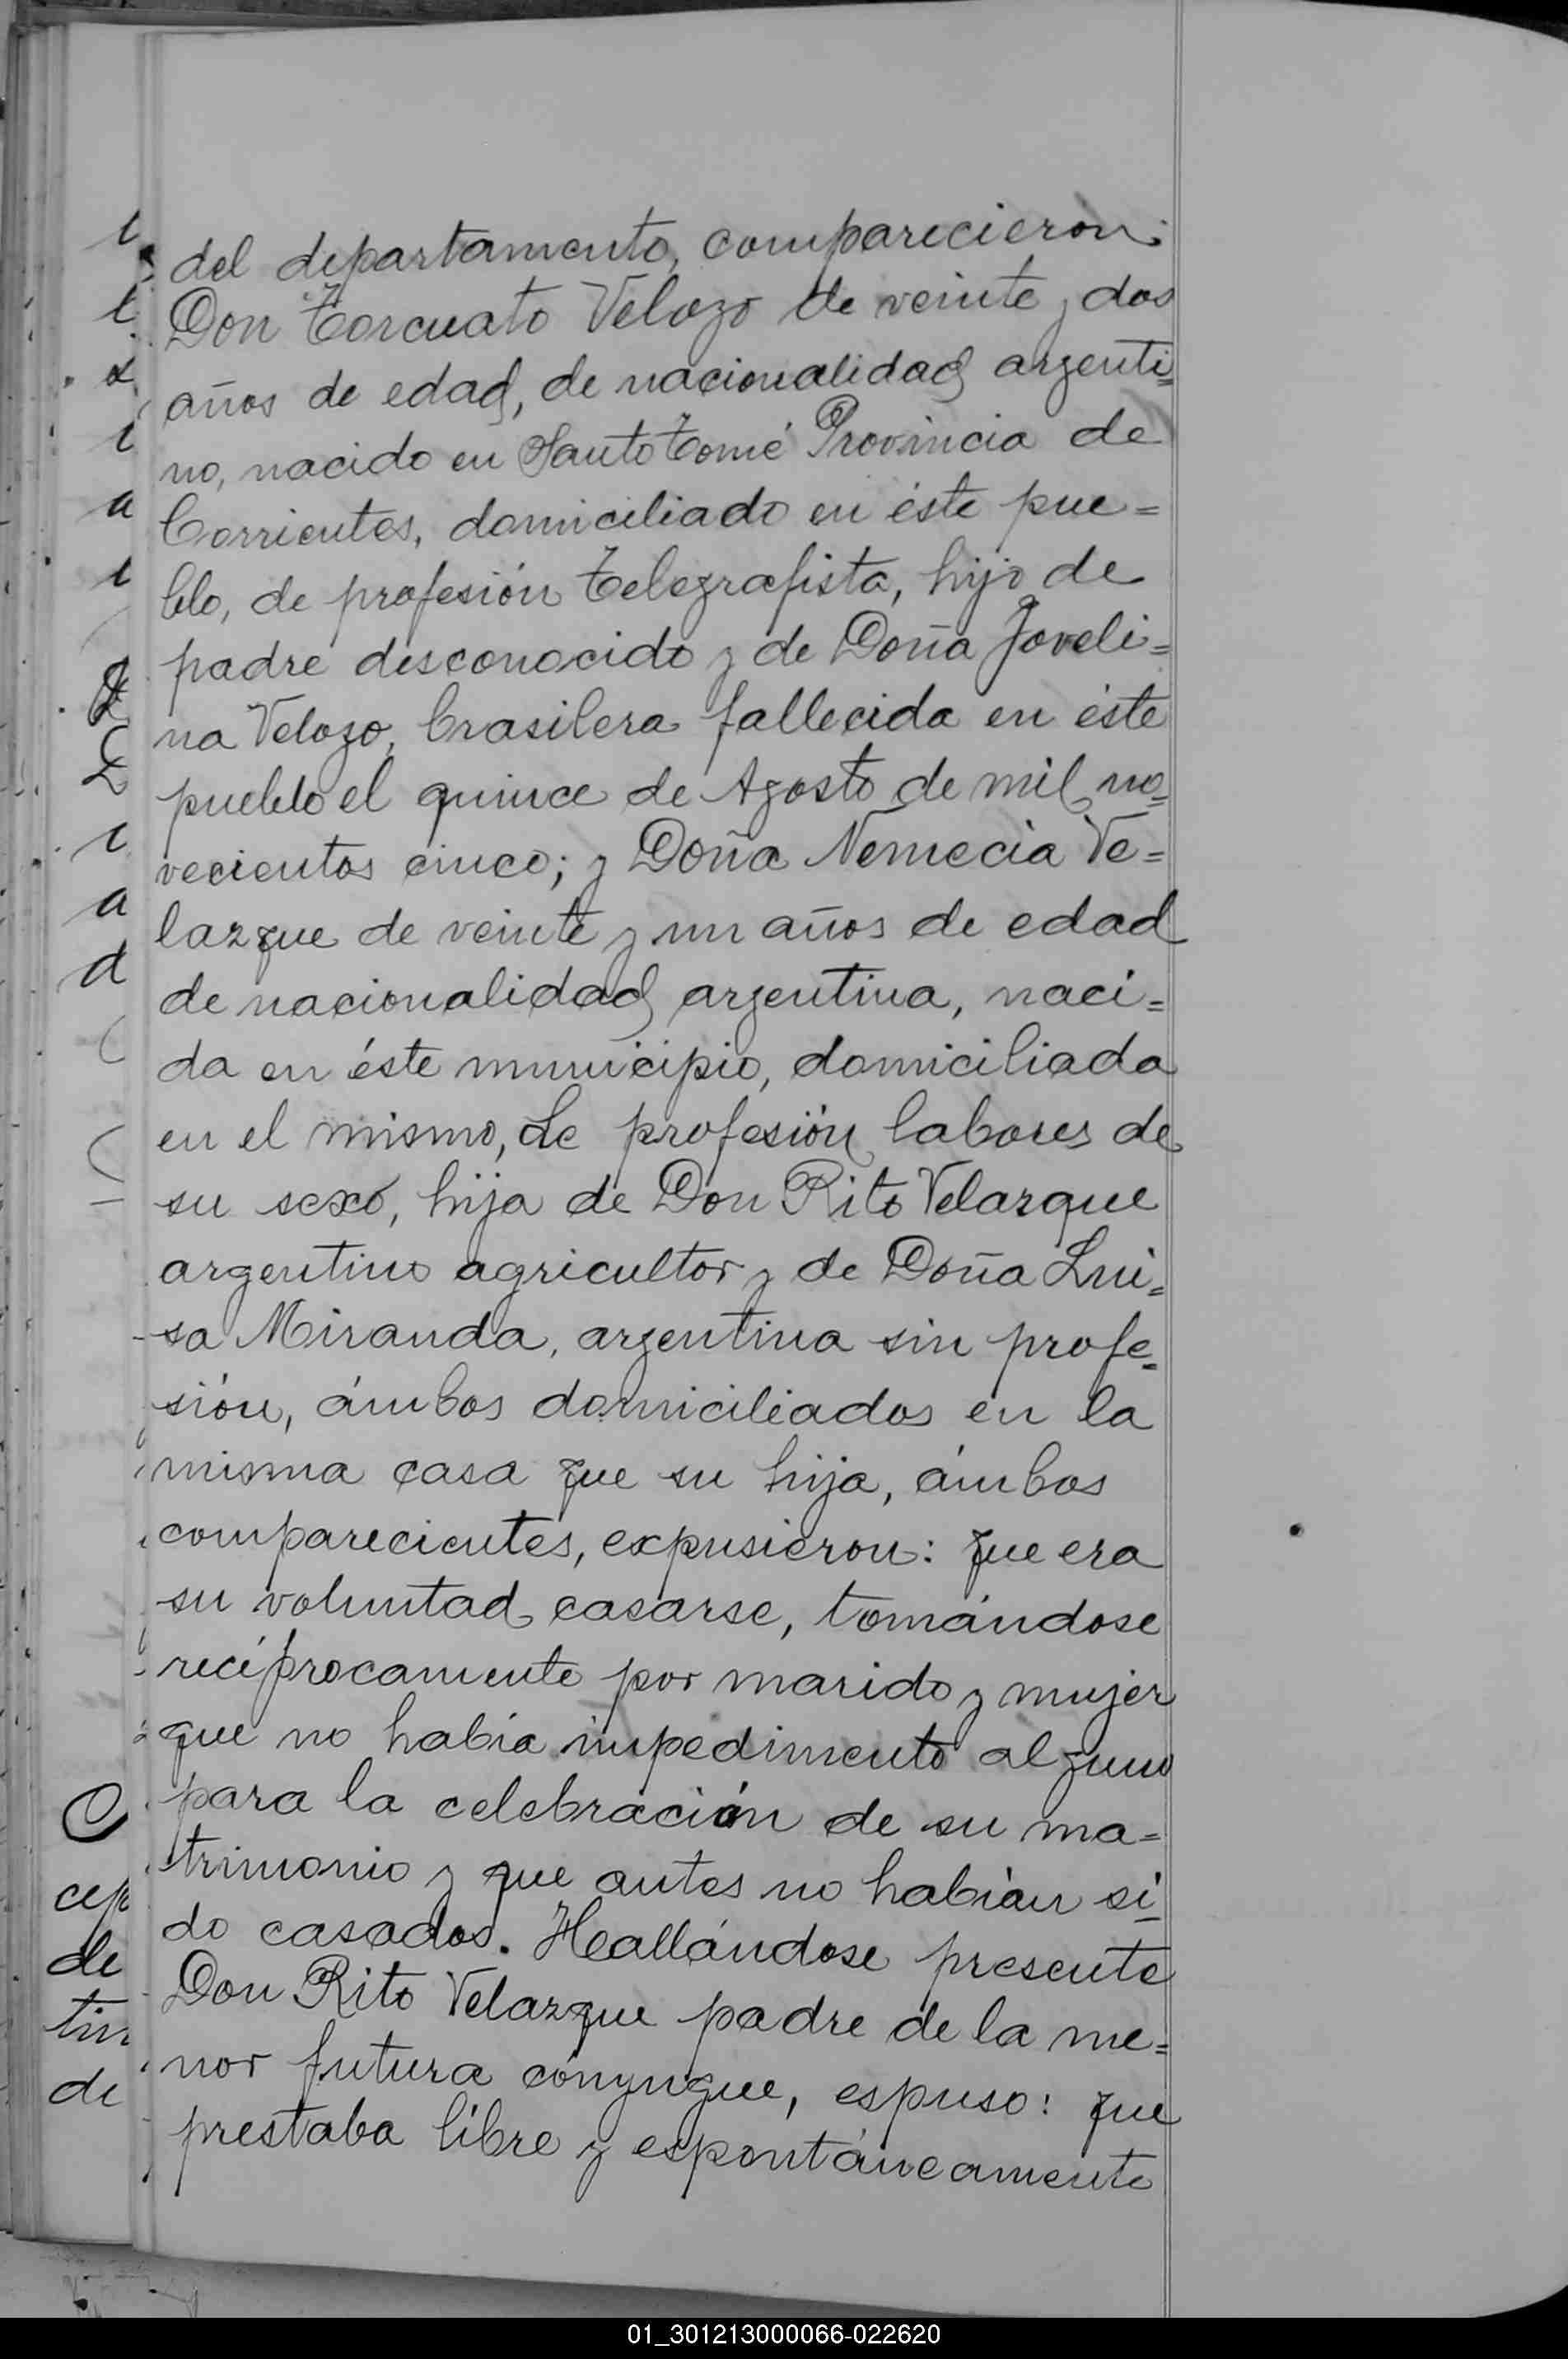 del departamento, comparecieron:
Don Torcuato Velozo de veinte y dos
años de edad, de nacionalidad argenti=
no, nacido en Santo Tomé Provincia de
Corrientes, domiciliado en éste pue=
blo, de profesión Telegrafista, hijo de
padre desconocido y de Doña Joveli=
na Velozo, brasilera fallecida en éste
pueblo el quince de Agosto de mil no=
vecientos cinco; y Doña Nemecia Ve=
lazque de veinte y un años de edad
de nacionalidad argentina, naci=
da en éste municipio, domiciliada
en el mismo, de profesión labores de
su sexo, hija de Don Rito Velazque
argentino agricultor y de Doña Lui=
sa Miranda, argentina sin profe=
sión, ámbos domiciliados en la
misma casa que su hija, ámbos
comparecientes, expusieron: que era
su voluntad casarse, tomándose
recíprocamente por marido y mujer
que no había impedimento alguno
para la celebración de su ma=
trimonio y que antes no habían si=
do casados. Heallándose presente
Don Rito Velazque padre de la me=
nor futura cónyugue, espuso: que
prestaba libre y espontáneamente
cep
de
tin
de
01_301213000066-022620